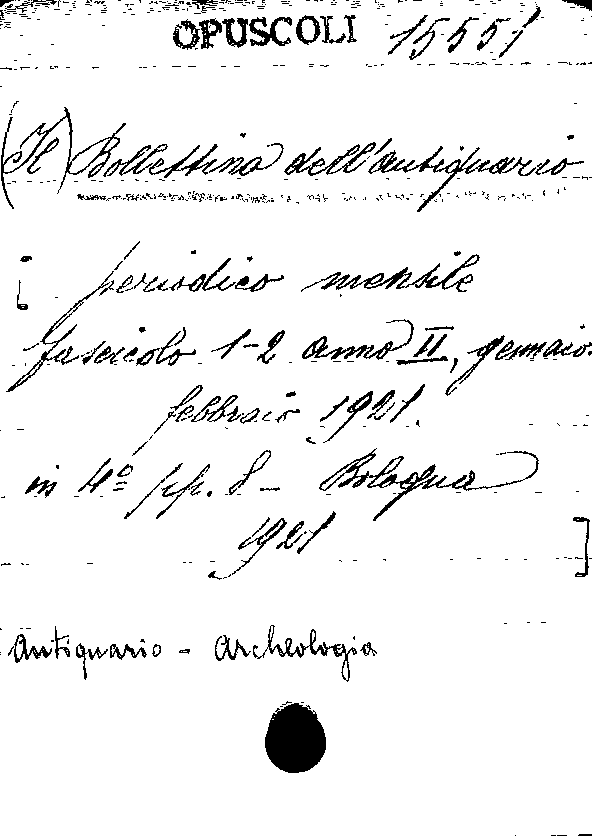 OPUSCOLI 15551
(Il) Bollettino dell'antiquario
[ periodico mensile
fascicolo 1-2 anno II, gennaio
febbraio 1921.
in 4º pp. 8 - Bologna
1921 ]
Antiquario - Archeologia